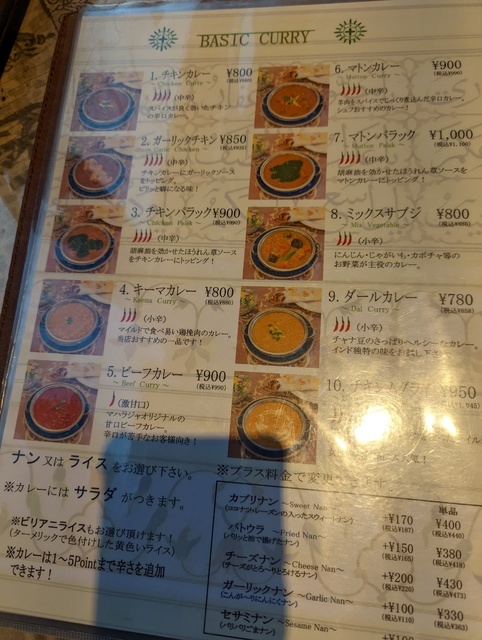 BASIC CURRY
1. チキンカレー ¥800
~ Chicken Curry ~ (税込¥880)
(中辛)
スパイスが良く効いたチキン
の辛口カレー。
2. ガーリックチキン ¥850
Garlic Chicken ~
(中辛)
チキンカレーにガーリックソース
をトッピング。
ピリッと癖になる味!
3. チキンパラック ¥900
~ Chicken Palak ~
(中辛)
胡麻油を効かせたほうれん草ソース
をチキンカレーにトッピング!
4. キーマカレー ¥800
~ Keema Curry ~ (税込¥880)
(小辛)
マイルドで食べ易い鶏挽肉のカレー。
当店おすすめの一品です!
5. ビーフカレー ¥900
~ Beef Curry ~ (税込¥990)
(激甘口)
マハラジャオリジナルの
甘口ビーフカレー。
辛口が苦手なお客様向き!
6. マトンカレー ¥900
~ Mutton Curry ~ (税込¥990)
(中辛)
羊肉をスパイスでじっくり煮込んだ辛口カレー。
シェフおすすめのカレー!
7. マトンパラック ¥1,000
~ Mutton Palak ~ (税込¥1,100)
(中辛)
胡麻油を効かせたほうれん草ソースを
マトンカレーにトッピング!
8. ミックスサブジ ¥800
~ Mix Vegetable ~ (税込¥880)
(小辛)
にんじん・じゃがいも・カボチャ等の
お野菜が主役のカレー。
9. ダールカレー ¥780
~ Dal Curry ~ (税込¥858)
(小辛)
チャナ豆のさっぱりヘルシーなカレー。
インド独特の味をお試し下さい
10. チキン
950
ナン又は ライス をお選び下さい。
※カレーには サラダ がつきます。
※ビリアニライスもお選び頂けます!
(ターメリックで色付けした黄色いライス)
※カレーは1~5Pointまで辛さを追加
できます!
※プラス料金で変更
単品
カブリナン ~Sweet Nan~ +¥170 ¥400
(ココナツ・レーズンの入ったスウィートナン) (税込¥187) (税込¥440)
バトウラ ~Fried Nan~ +¥150 ¥380
(パリッと油で揚げたナン) (税込¥165) (税込¥418)
チーズナン ~Cheese Nan~ +¥200 ¥430
(チーズがとろ~りとろけるナン) (税込¥220) (税込¥473)
ガーリックナン ~Garlic Nan~ +¥100 ¥330
(こんが~りにんにくナン) (税込¥110) (税込¥363)
セサミナン ~Sesame Nan~
(パリパリごまナン)